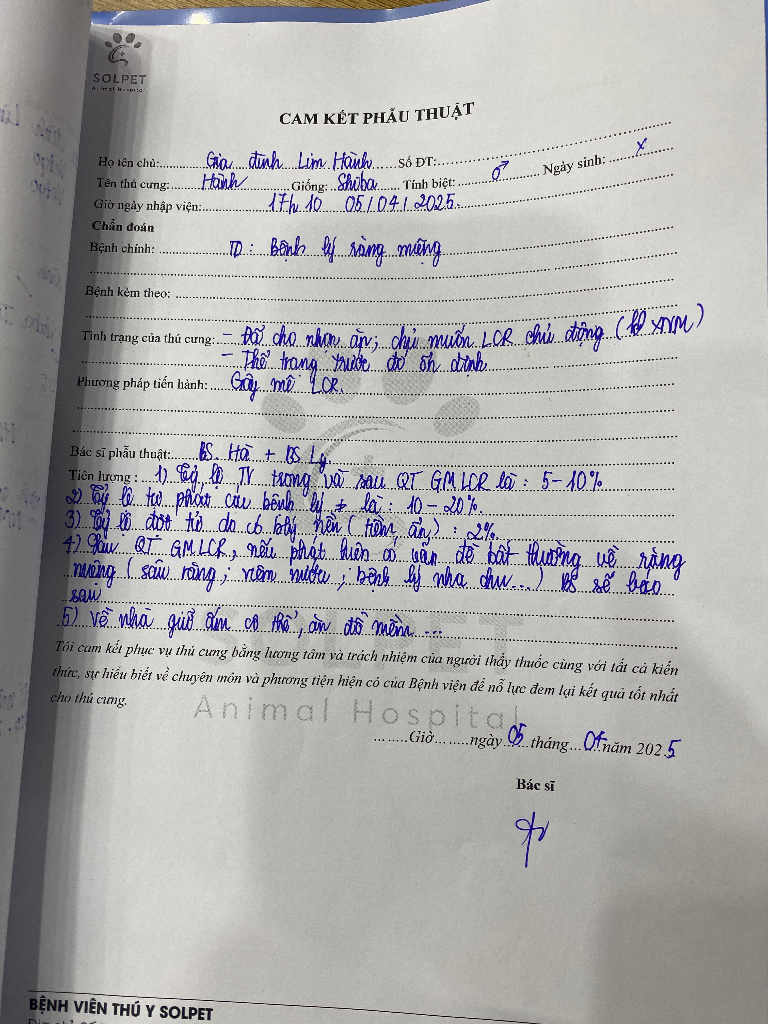 SOLPET
Animal Hospital
CAM KẾT PHẪU THUẬT
Họ tên chủ: Gia đình Lim Hành Số ĐT:
Tên thú cưng: Hành Giống: Shiba Tính biệt: ♂ Ngày sinh: X
Giờ ngày nhập viện: 17h10 05/04/2025.
Chẩn đoán
Bệnh chính: TD: Bệnh lý răng miệng
Bệnh kèm theo:
Tình trạng của thú cưng: - Đã cho nhịn ăn; chủ muốn LCR chủ động (ko XNM)
- Thể trạng trước đó ổn định
Phương pháp tiến hành: Gây mê LCR.
Bác sĩ phẫu thuật: BS. Hà + BS Ly
Tiên lượng: 1) Tỷ lệ TV trong và sau QT GMLCR là: 5-10%
2) Tỷ lệ tự phát các bệnh lý ≠ là: 10-20%.
3) Tỷ lệ đột tử do có bệnh nền (tiềm ẩn): 2%.
4) Sau QT GMLCR, nếu phát hiện có vấn đề bất thường về răng
miệng (sâu răng; viêm nướu; bệnh lý nha chu...) BS sẽ báo
sau
5) Về nhà giữ ấm cơ thể, ăn đồ mềm...
Tôi cam kết phục vụ thú cưng bằng lương tâm và trách nhiệm của người thầy thuốc cùng với tất cả kiến
thức, sự hiểu biết về chuyên môn và phương tiện hiện có của Bệnh viện để nỗ lực đem lại kết quả tốt nhất
cho thú cưng.
SOLPET
Animal Hospital
........Giờ........ngày 05 tháng 04 năm 2025
Bác sĩ
BỆNH VIỆN THÚ Y SOLPET